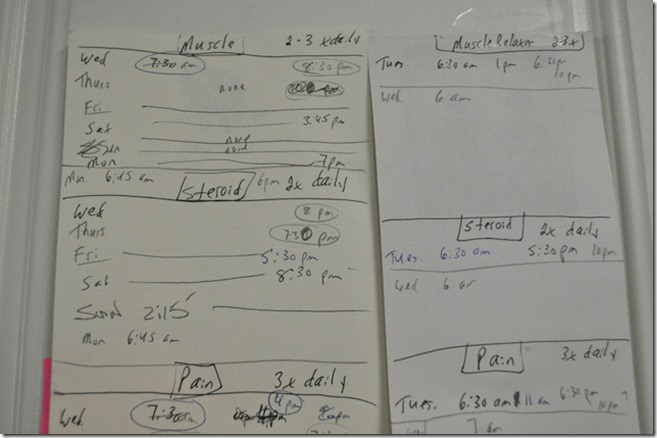 Muscle 2-3 x daily
Wed 7:30 am 8:30 pm
Thurs none
Fri
Sat 3:45 pm
Sun none
Mon 7 pm
Mon. 6:45 am Steroid 6pm 2x daily
Wed 8 pm
Thurs 7:30 pm
Fri 5:30 pm
Sat 8:30 pm
Sun 2:15
Mon 6:45 am
Pain 3x daily
Wed 7:30am 4 pm
Muscle Relaxer 2-3x
Tues. 6:30 am 1pm 6:30pm
10pm
Wed. 6 am
Steroid 2x daily
Tues. 6:30 am 5:30 pm 10pm
Wed 6 am
Pain 3x daily
Tues. 6:30 am 11 am 6:30 pm
10pm?
Wed